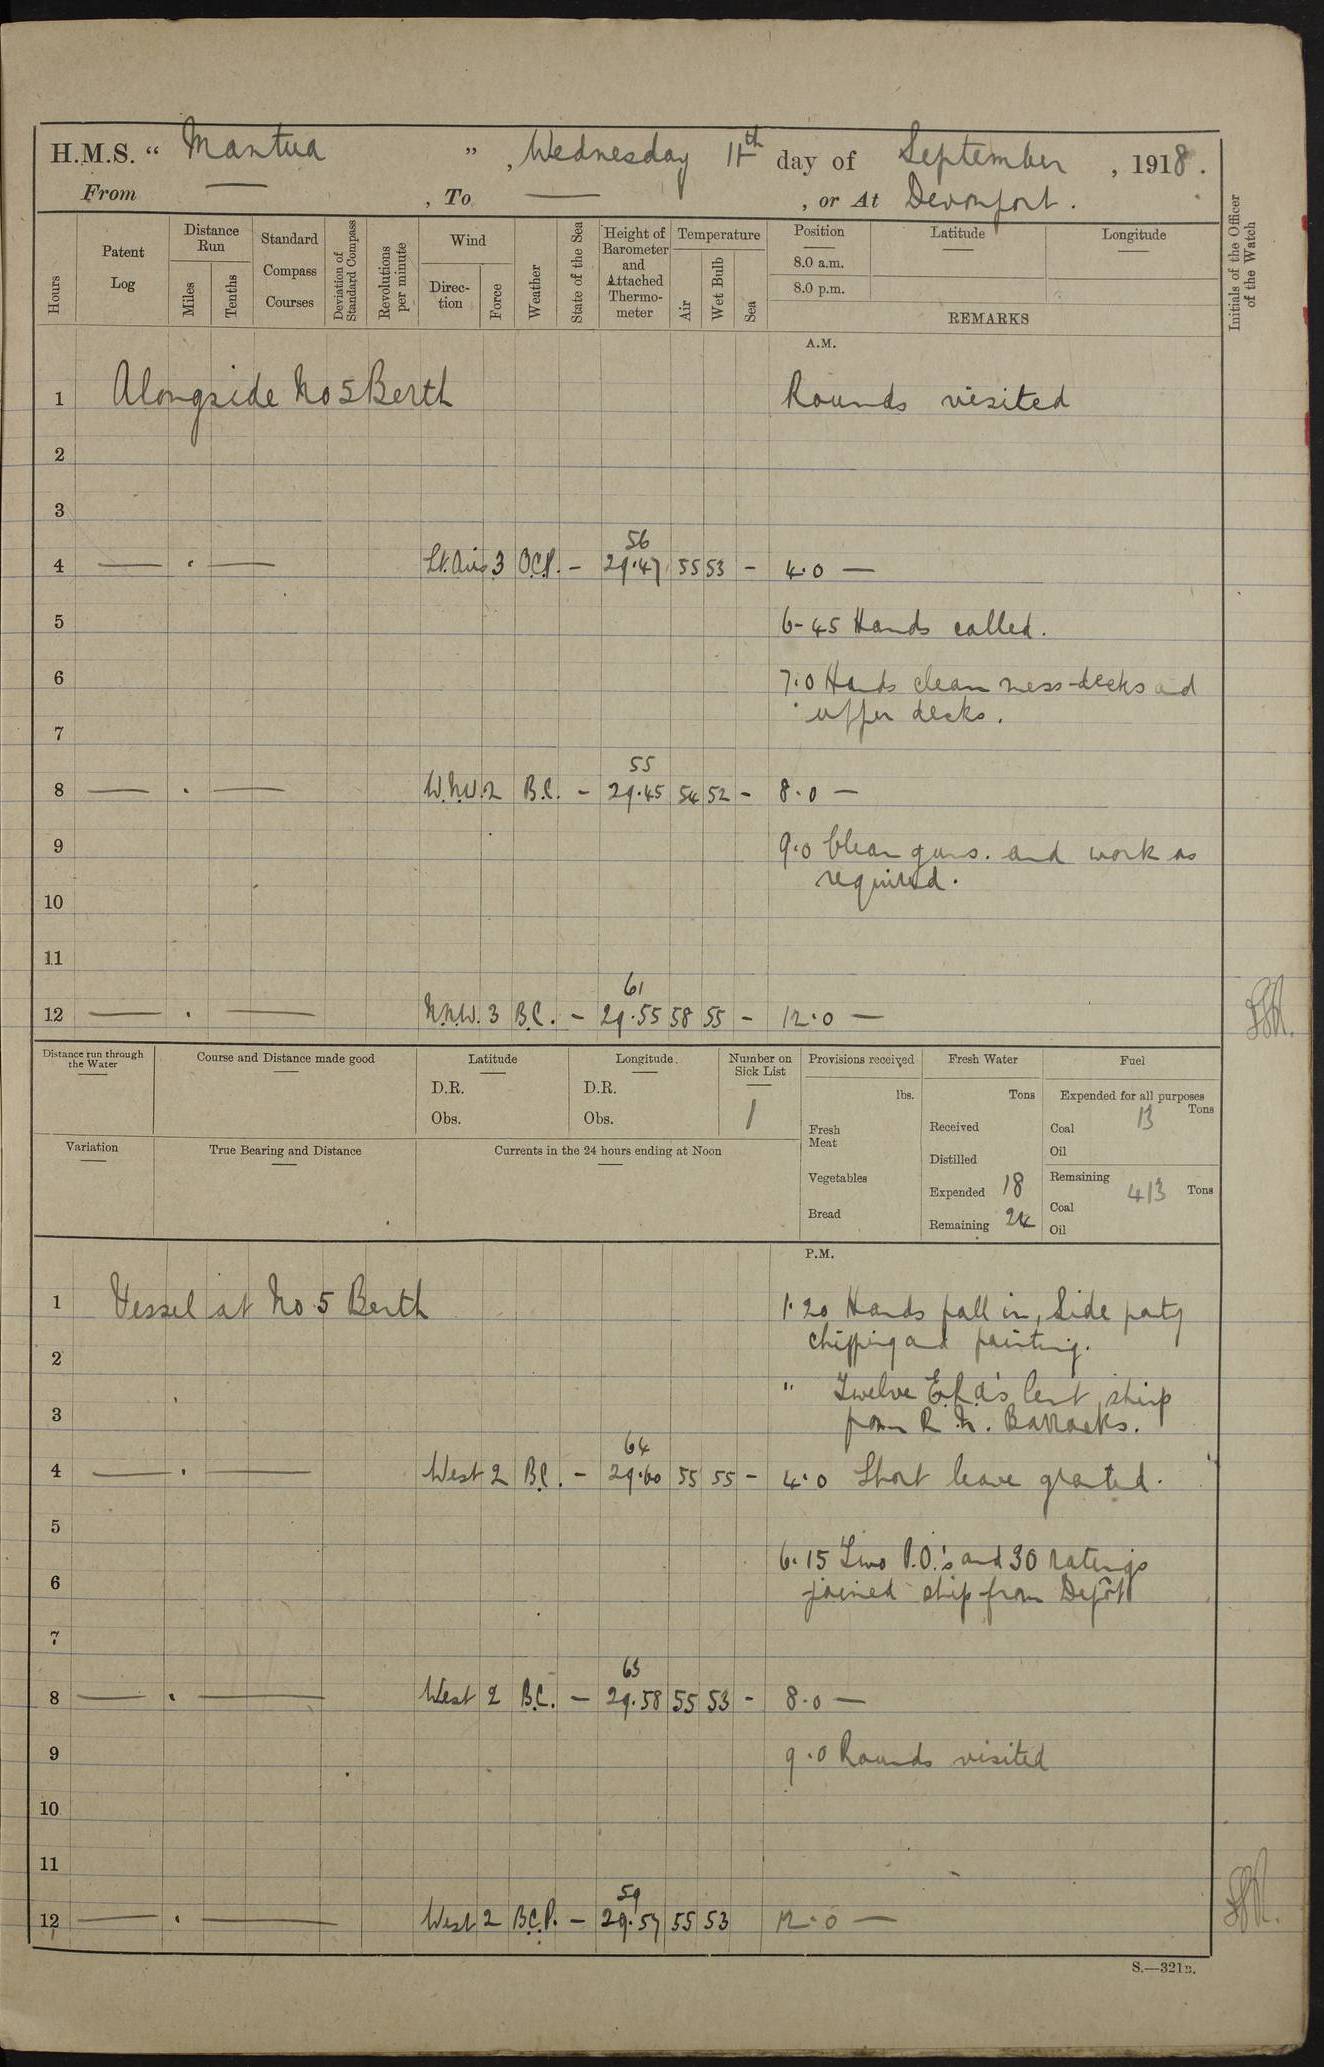 H.M.S. “ Mantua ” , Wednesday 11th day of September , 1918.
From — , To — , or At Devonport.
Hours
Patent Log
Distance Run
Miles
Tenths
Standard Compass Courses
Deviation of Standard Compass
Revolutions per minute
Wind
Direction
Force
Weather
State of the Sea
Height of Barometer and Attached Thermometer
Temperature
Air
Wet Bulb
Sea
Position
8.0 a.m.
8.0 p.m.
Latitude
Longitude
REMARKS
Initials of the Officer of the Watch
A.M.
1 Alongside No 5 Berth Rounds visited
2
3
56
4 — . — Lt. Airs 3 O.C.P. — 29.47 55 53 — 4.0 —
5 6-45 Hands called.
6 7.0 Hands clean mess-decks and
upper decks.
7
55
8 — . — W.N.W. 2 B.C. — 29.45 54 52 — 8.0 —
9 9.0 Clean guns. and work as
required.
10
11
61
12 — . — N.N.W. 3 B.C. — 29.55 58 55 — 12.0 —
Distance run through the Water
Course and Distance made good
Latitude
D.R.
Obs.
Longitude
D.R.
Obs.
Number on Sick List
1
Variation
True Bearing and Distance
Currents in the 24 hours ending at Noon
Provisions received
lbs.
Fresh Meat
Vegetables
Bread
Fresh Water
Tons
Received
Distilled
Expended 18
Remaining 24
Fuel
Expended for all purposes
Tons
Coal 13
Oil
Remaining
413 Tons
Coal
Oil
P.M.
1 Vessel at No 5 Berth 1.20 Hands fall in, Side party
chipping and painting.
2
" Twelve E.R.A's lent ship
3 from R.N. Barracks.
64
4 — . — West 2 B.C. — 29.60 55 55 — 4.0 Short leave granted.
5
6.15 Two P.O.'s and 30 ratings
6 joined ship from Depôt
7
63
8 — . — West 2 B.C. — 29.58 55 53 — 8.0 —
9 9.0 Rounds visited
10
11
59
12 — . — West 2 B.C.P. — 29.57 55 53 12.0 —
S.—321B.